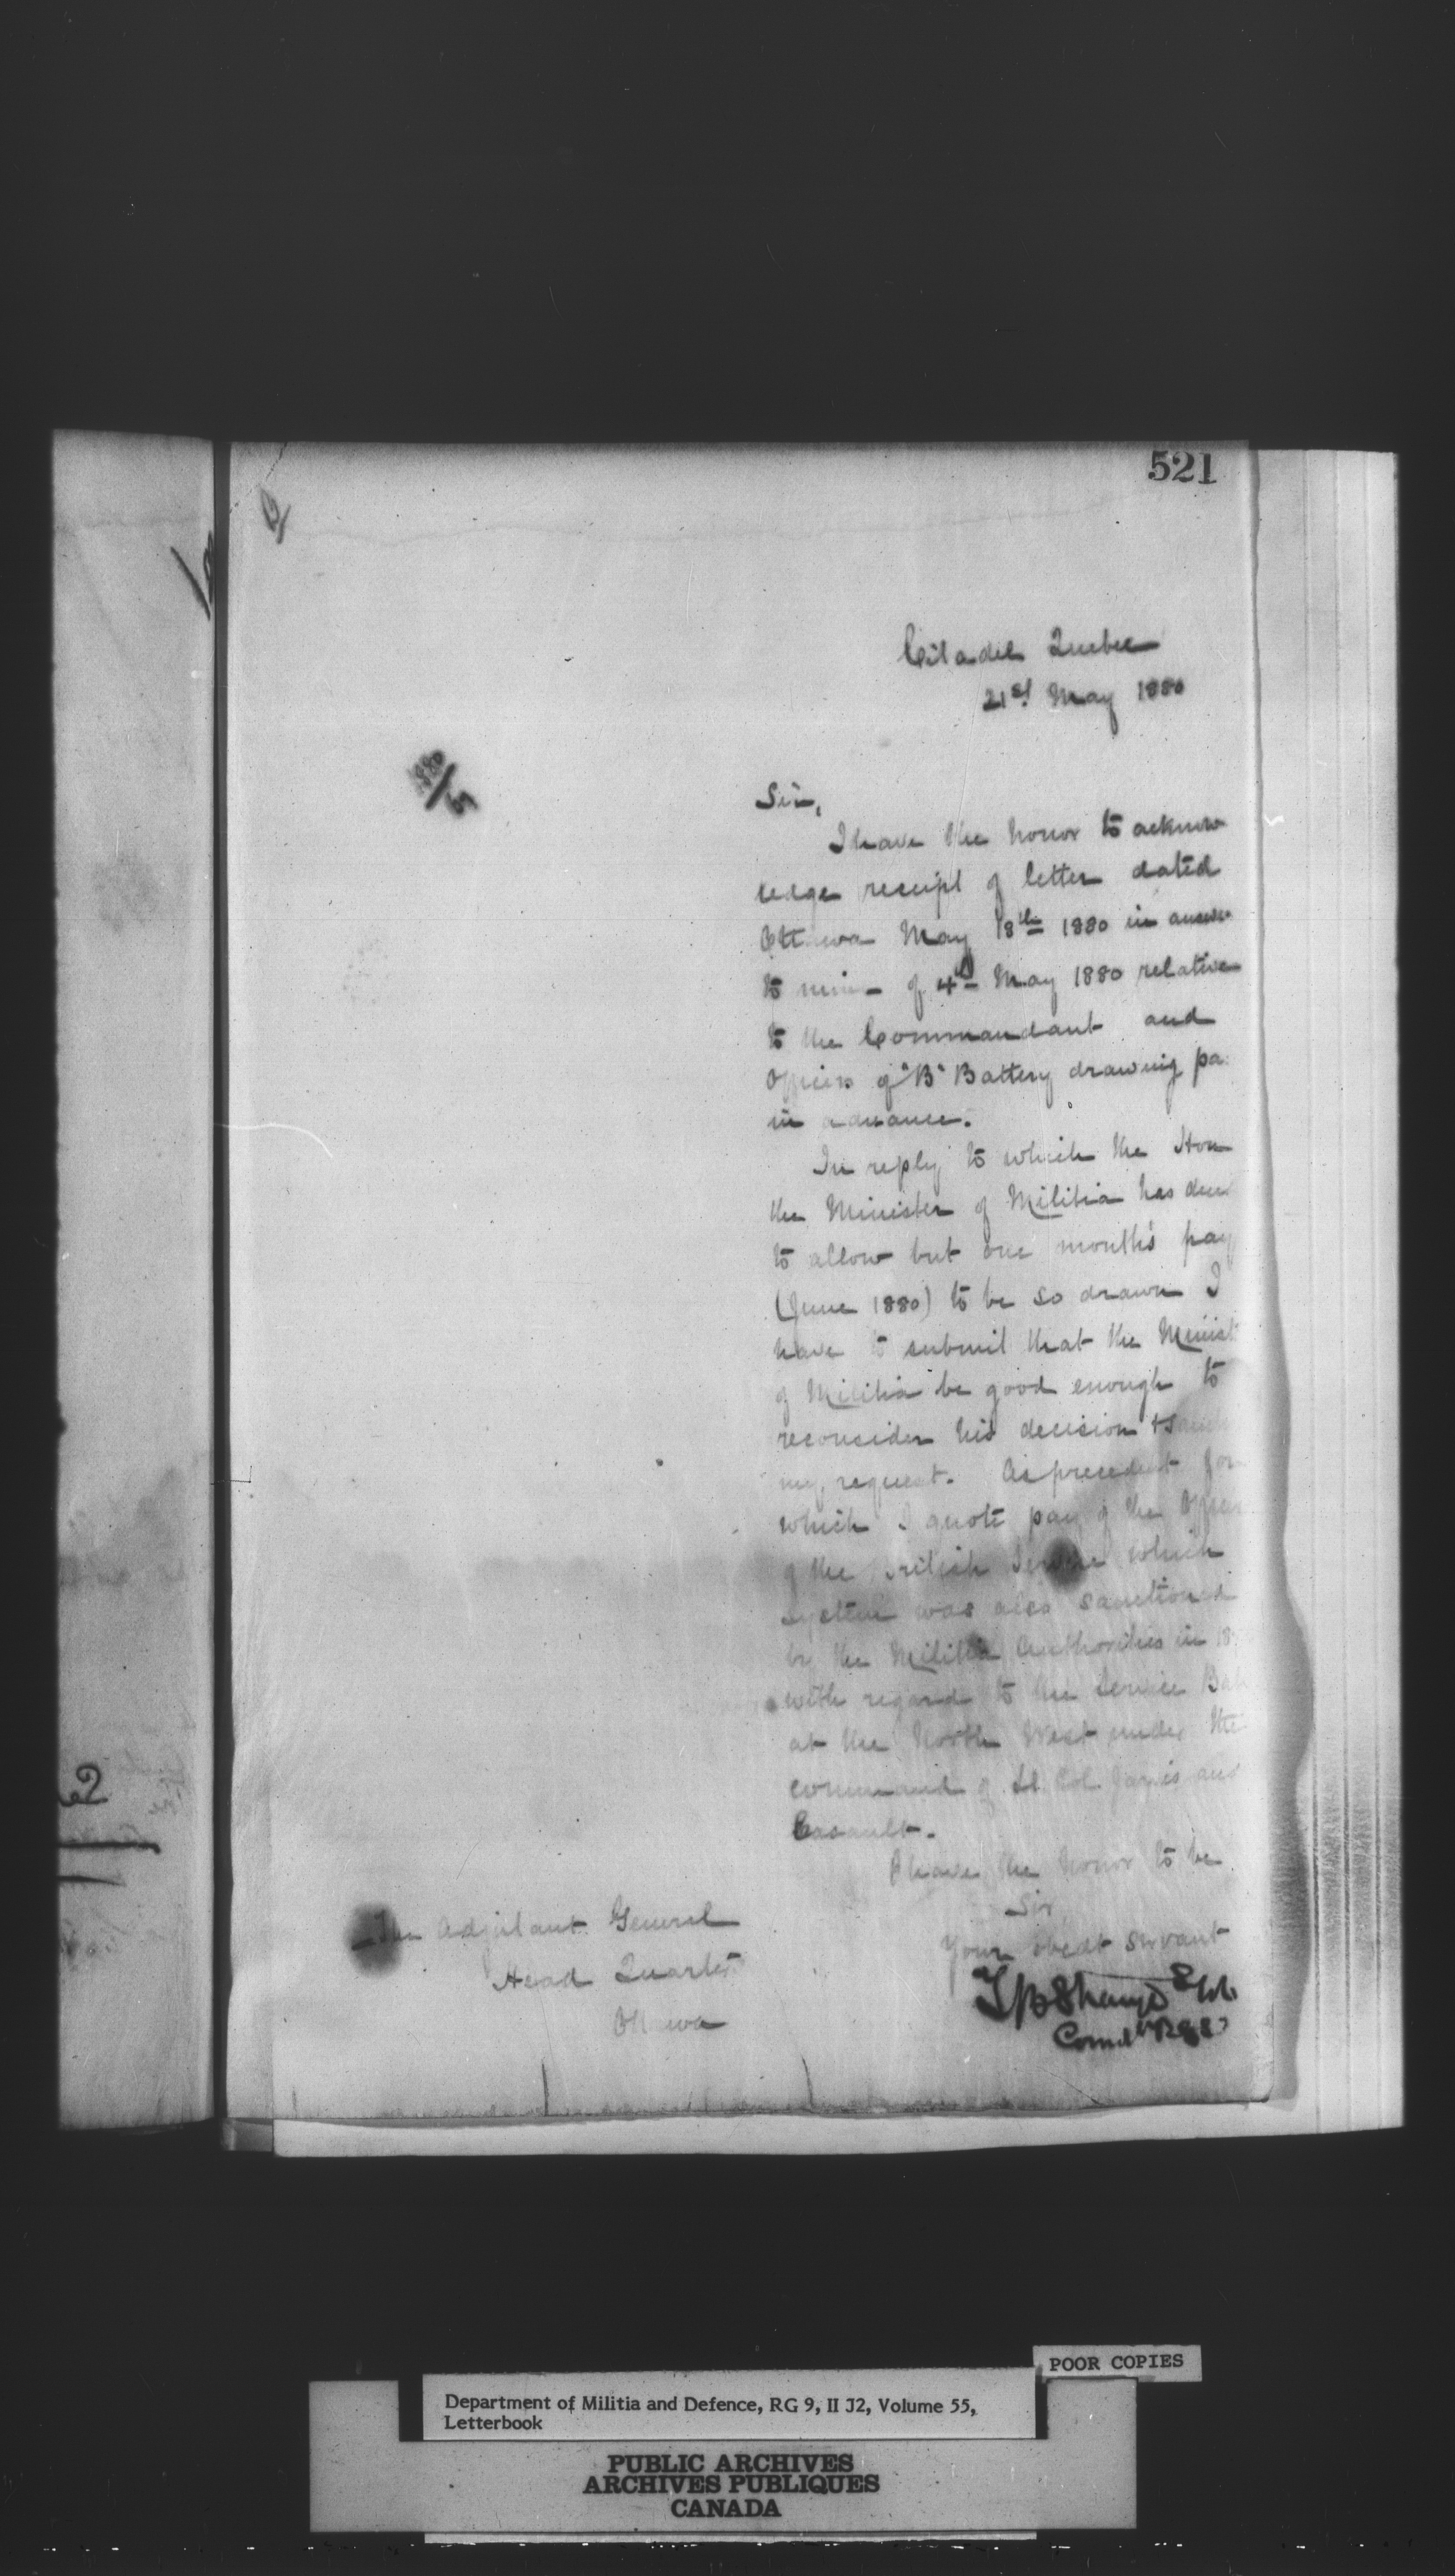 521
Citadel Quebec
21st May 1880
1880
Sir,
I have the honor to acknow
ledge receipt of letter dated
Ottawa May 18th 1880 in answer
to mine of 4th May 1880 relative
to the Commandant and
Officers of "B" Battery drawing pa
in advance.
In reply to which the Hon
the Minister of Militia has
to allow but one month's pay
(June 1880) to be so drawn I
have to submit that the Minist
of Militia be good enough to
reconsider his decision &
my request. As precedent for
which I quote pay of the Officers
of the British Service which
system was also sanctioned
by the Militia Authorities in 18
with regard to the Service Bat
at the North West under the
command of Lt. Col. Jarvis and
Casault.
I have the honor to be
Sir
Your obedt servant
TB Strange
The Adjutant General
Head Quarters
Ottawa
2
POOR COPIES
Department of Militia and Defence, RG 9, II J2, Volume 55,
Letterbook
PUBLIC ARCHIVES
ARCHIVES PUBLIQUES
CANADA